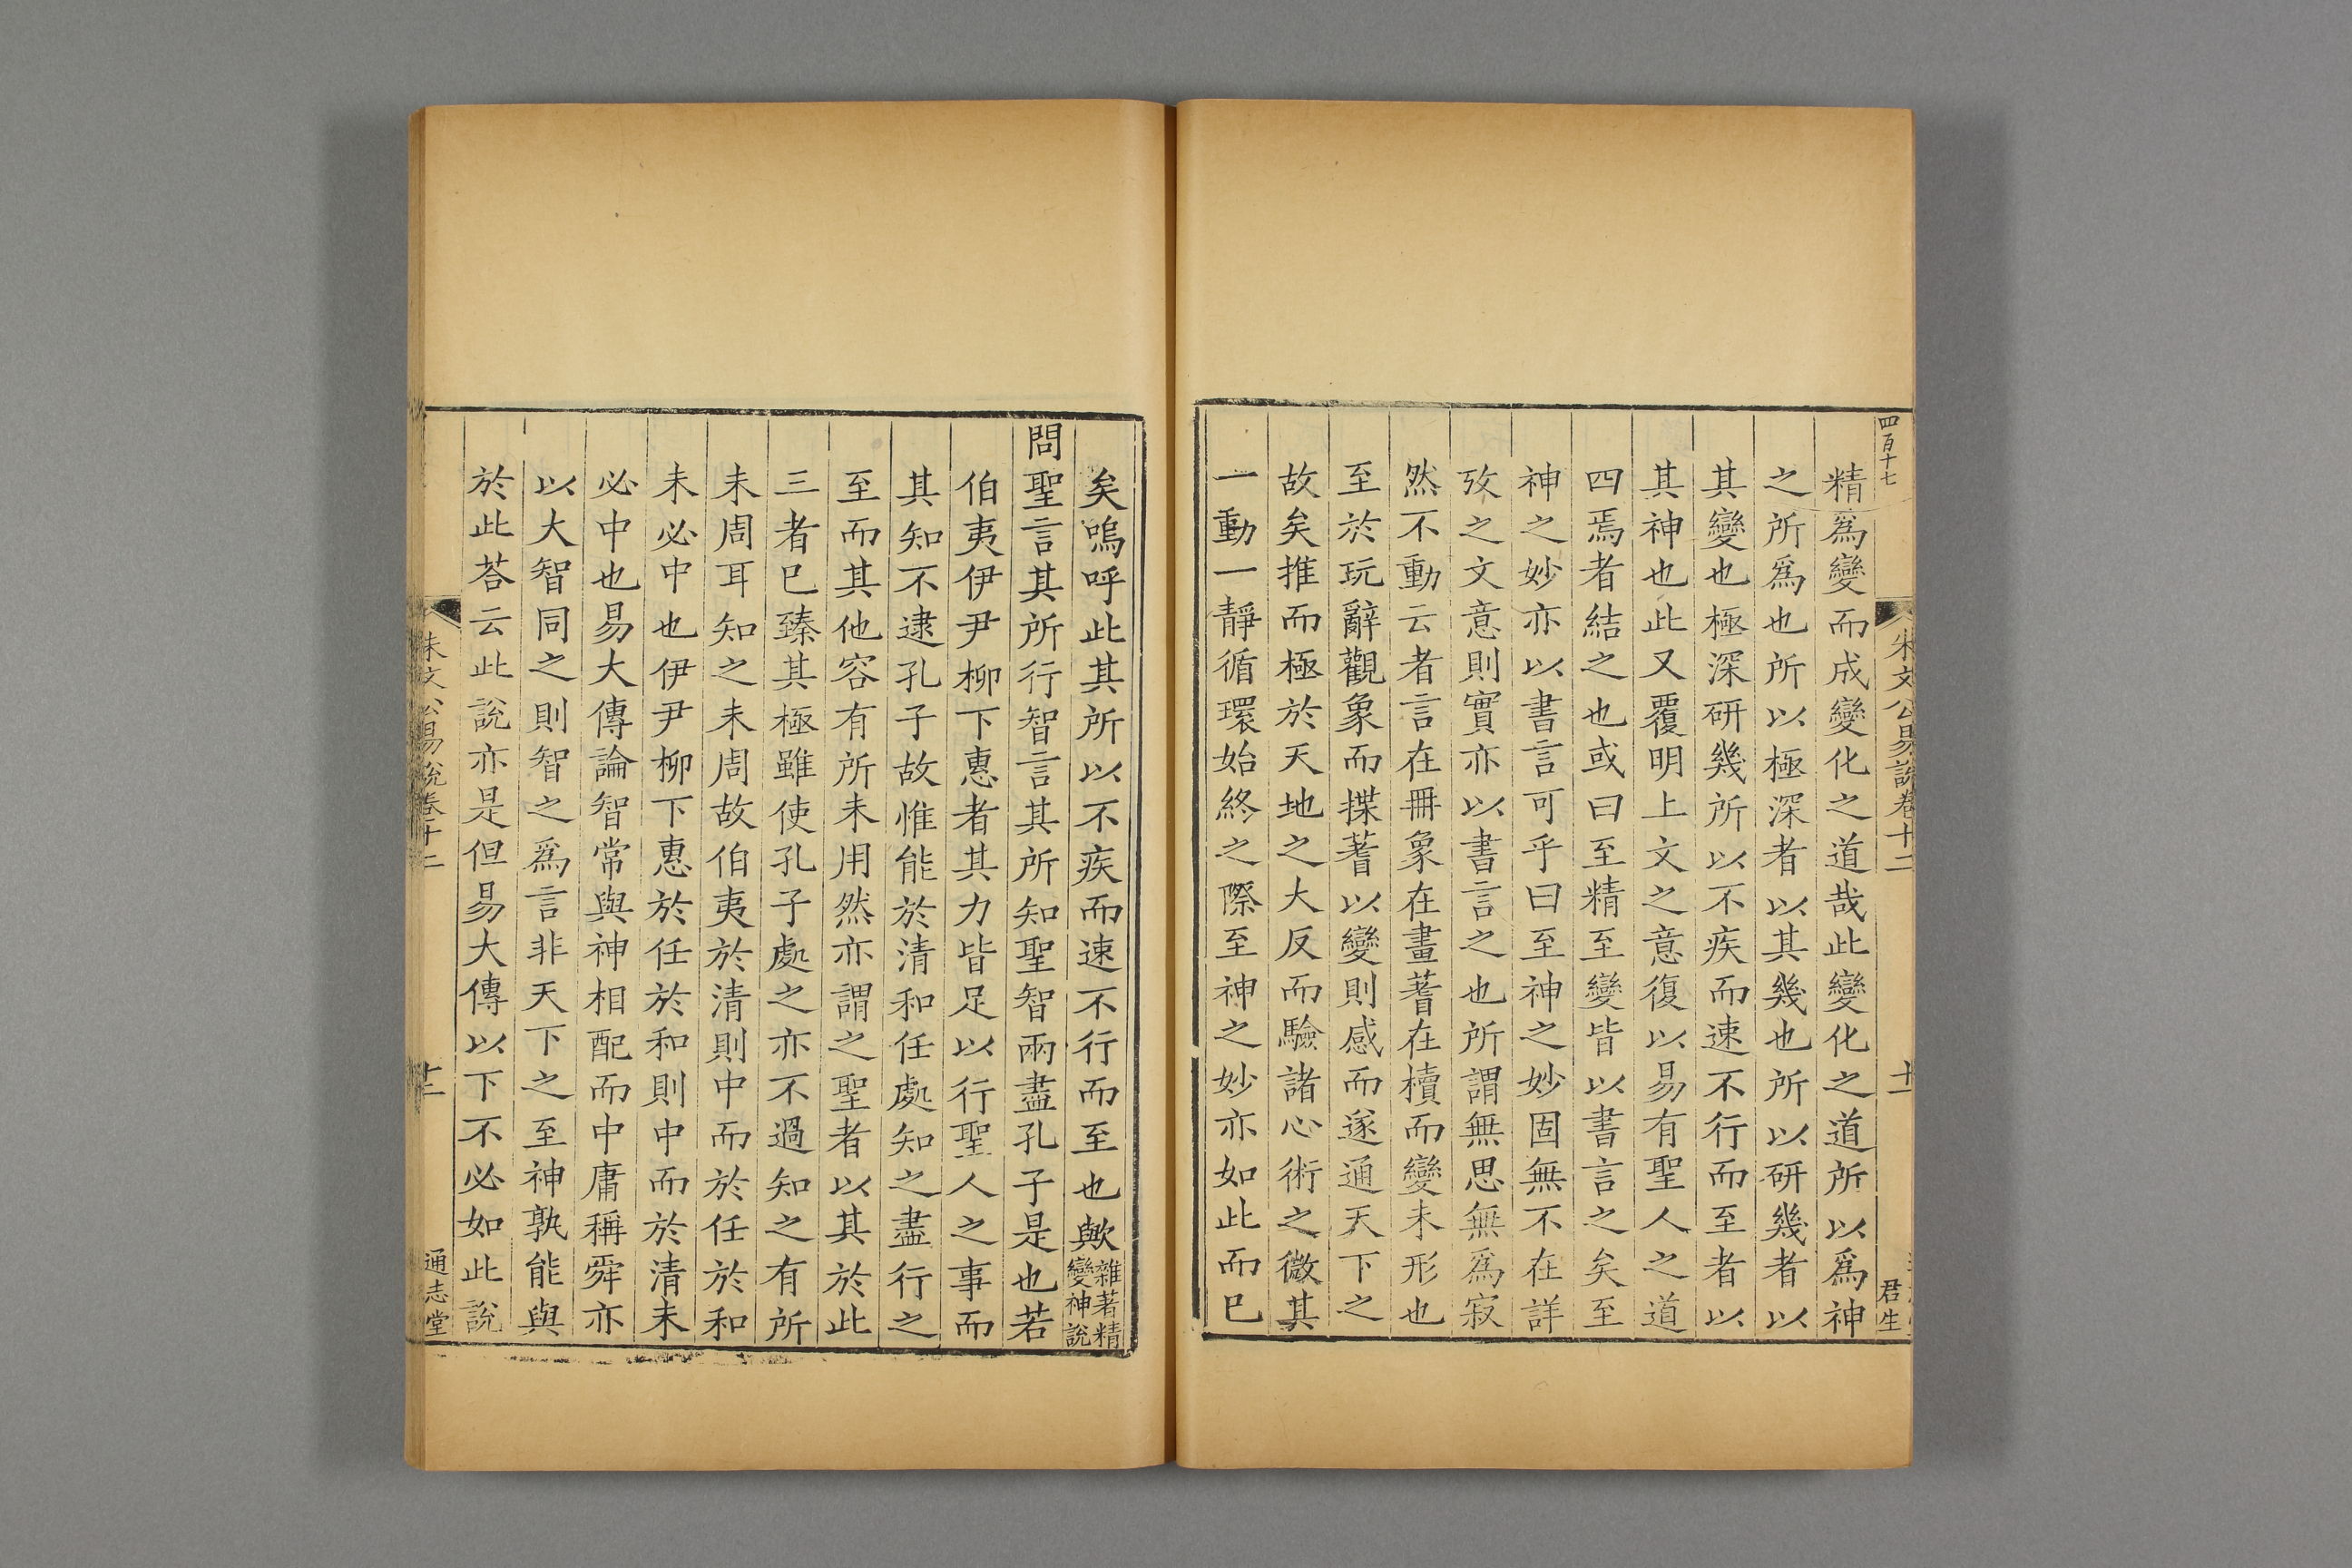 四百十七
朱文公易說卷十二
十一
君生
精爲變而成變化之道哉此變化之道所以爲神
之所爲也所以極深者以其幾也所以研幾者以
其變也極深研幾所以不疾而速不行而至者以
其神也此又覆明上文之意復以易有聖人之道
四焉者結之也或曰至精至變皆以書言之矣至
神之妙亦以書言可乎曰至神之妙固無不在詳
攷之文意則實亦以書言之也所謂無思無爲寂
然不動云者言在冊象在畫蓍在櫝而變未形也
至於玩辭觀象而揲蓍以變則感而遂通天下之
故矣推而極於天地之大反而驗諸心術之微其
一動一靜循環始終之際至神之妙亦如此而已
矣嗚呼此其所以不疾而速不行而至也歟雜著精
變神說
問聖言其所行智言其所知聖智兩盡孔子是也若
伯夷伊尹柳下惠者其力皆足以行聖人之事而
其知不逮孔子故惟能於清和任處知之盡行之
至而其他容有所未用然亦謂之聖者以其於此
三者已臻其極雖使孔子處之亦不過知之有所
未周耳知之未周故伯夷於清則中而於任於和
未必中也伊尹柳下惠於任於和則中而於清未
必中也易大傳論智常與神相配而中庸稱舜亦
以大智同之則智之爲言非天下之至神孰能與
於此荅云此說亦是但易大傳以下不必如此說
朱文公易說卷十二
十一
通志堂